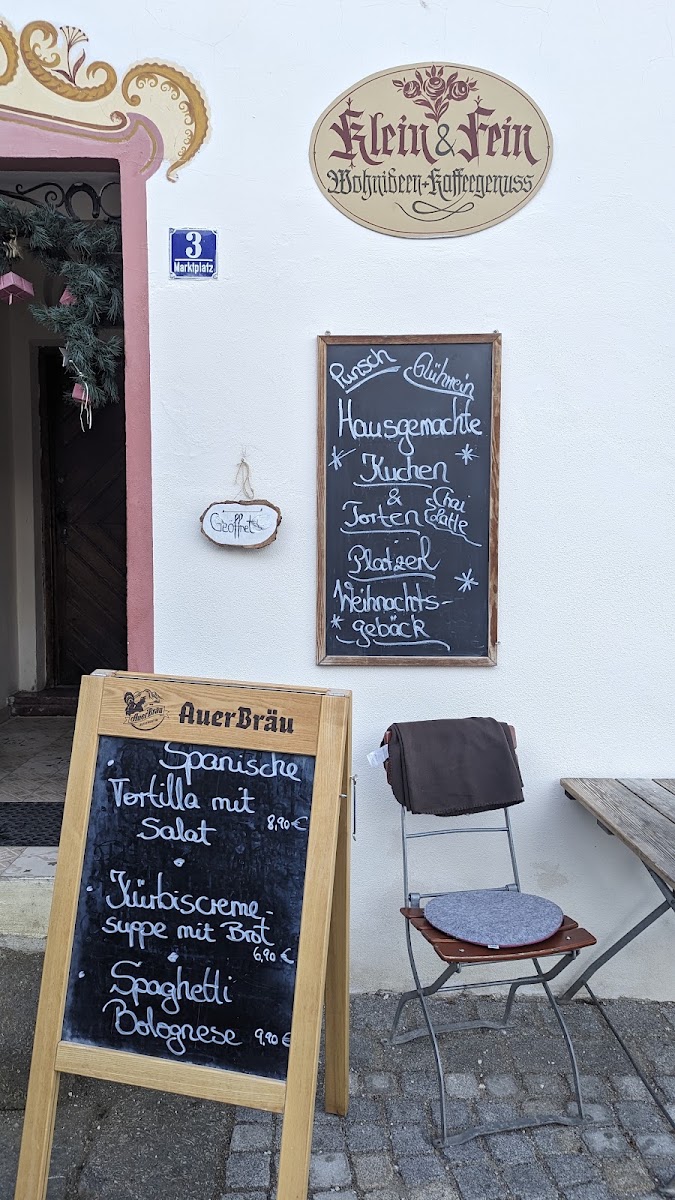 Klein & Fein
Wohnideen+Kaffeegenuss
3
Marktplatz
Punsch Glühwein
Hausgemachte
Kuchen
&
Torten
Chai
Latte
Platzerl
Weihnachts-
gebäck
Geöffnet
AuerBräu
AuerBräu
Spanische
Tortilla mit
Salat 8,90€
Kürbiscreme-
suppe mit Brot
6,90€
Spaghetti
Bolognese 9,90€